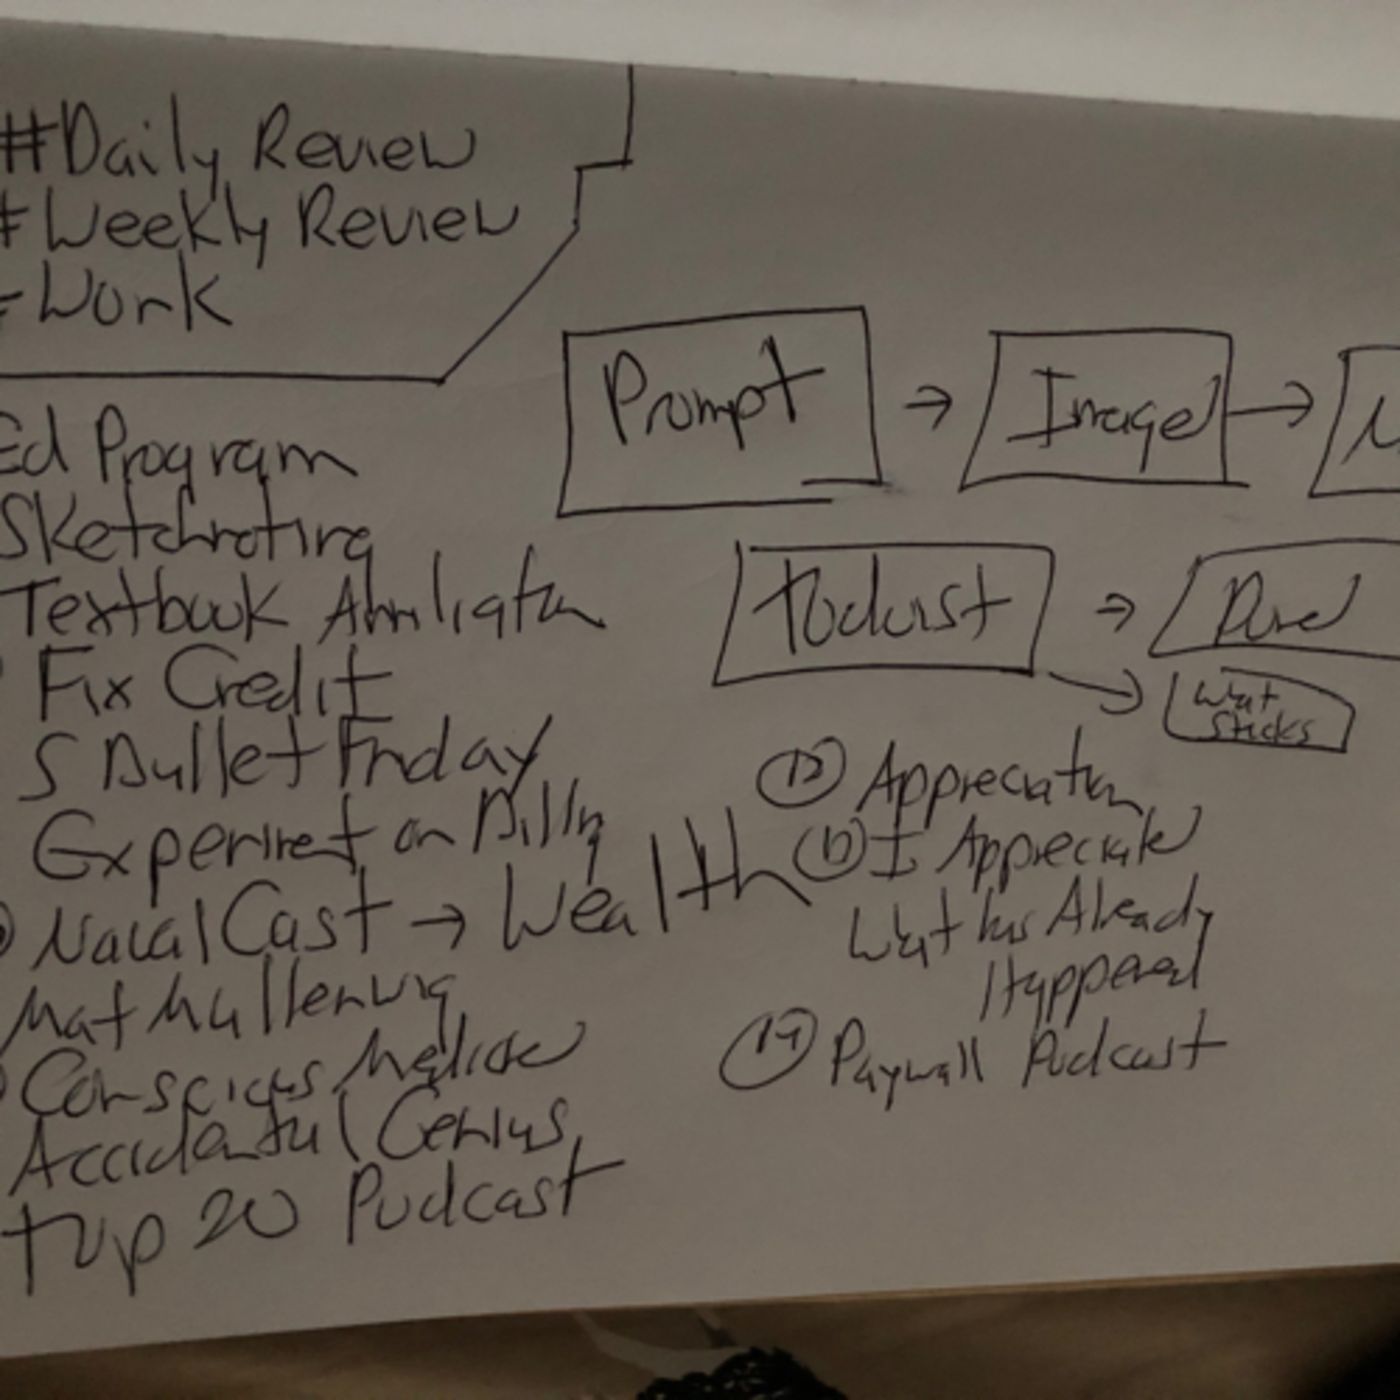 #Daily Review
#Weekly Review
#Work
Ed Program
Sketchnoting
Textbook
Fix Credit
5 Bullet Friday
Experiment on
Naval Cast → Wealth
Mat Mullenwig
Conscious
Accidental Genius
Top 20 Podcast
Prompt → Image →
Podcast →
What
Sticks
Appreciation
I Appreciate
What has Already
Happened
Paywall Podcast